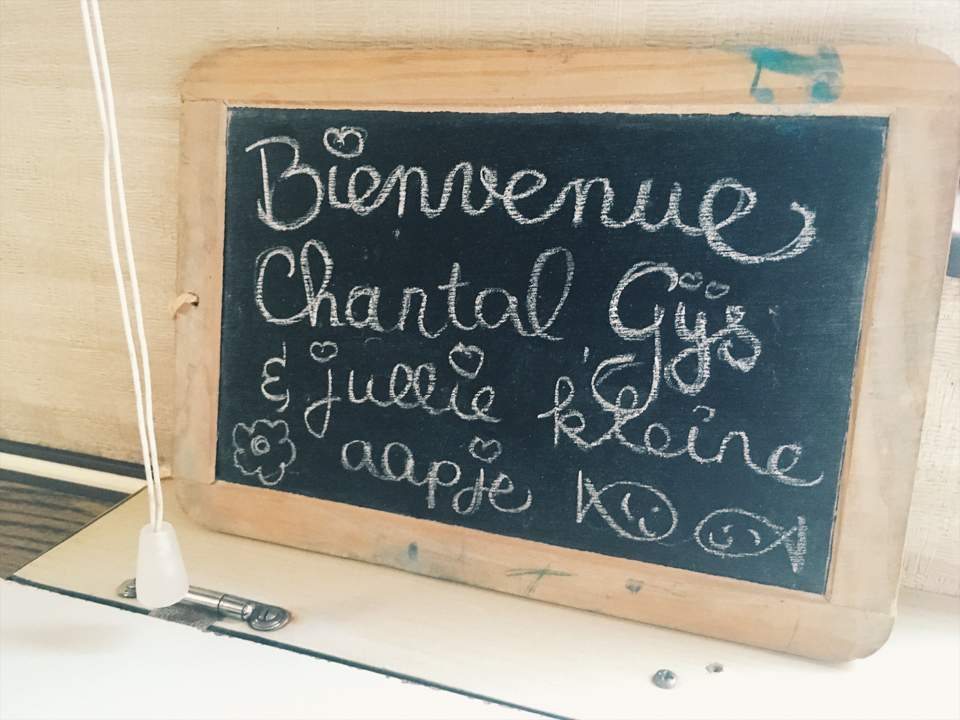 Bienvenue
Chantal Gÿs
& jullie kleine
aapje